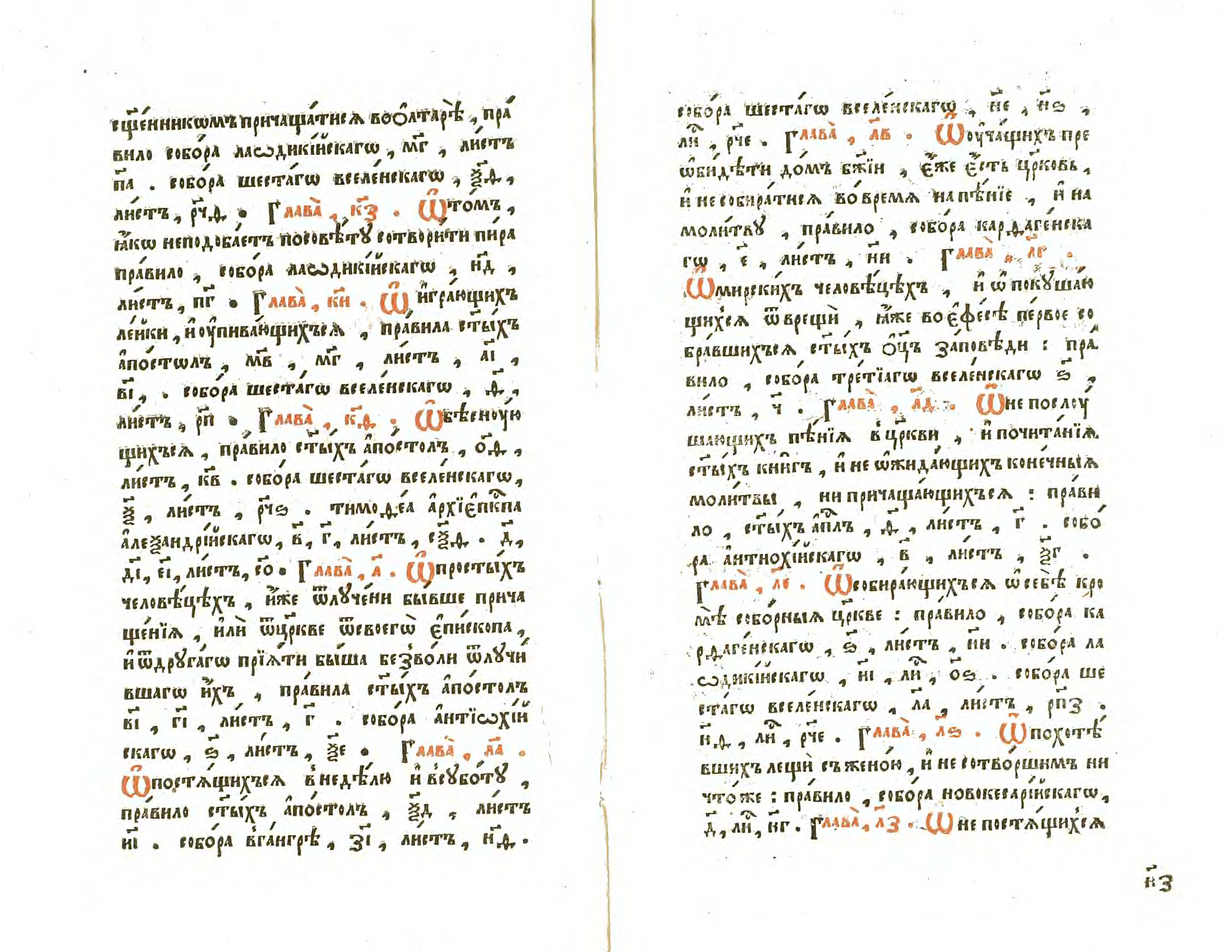 сщ҃е́нникѡмъ причаща́тися воо̂лтарѣ̀ , пра́
вило собо́ра лаѡдикі́йскагѡ , м҃г , ли́стъ
п҃а . собо́ра шеста́гѡ вселе́нскагѡ , ѯ҃ѳ ,
ли́стъ , рч҃ѳ . Глава̀ , к҃з . Ѿто́мъ ,
ꙗ҆́кѡ неподоба́етъ посовѣ́тꙋ сотвори́ти пира
пра́вило , собо́ра лаѡдикі́йскагѡ , н҃д ,
ли́стъ , п҃г . Глава̀ , к҃и . Ѿ и҆гра́ющихъ
ле́йки , и҆ оу҆пива́ющихъся , пра́вила ст҃ы́хъ
а҆по́столъ , м҃в , м҃г , ли́стъ , а҃і ,
в҃і , . собо́ра шеста́гѡ вселе́нскагѡ , ѳ҃ ,
ли́стъ , рп҃ . Глава̀ , к҃ѳ . Ѿбѣсноую
щихъся , пра́вило ст҃ы́хъ а҆по́столъ , о҃ѳ ,
ли́стъ , к҃в . собо́ра шеста́гѡ вселе́нскагѡ ,
ѯ҃ , ли́стъ , рч҃ѕ . тимоѳе́а а҆рхїе҆пк҃па
а҆леѯандрі́йскагѡ , в҃ , г҃ , ли́стъ , сѯ҃ѳ . д҃ ,
д҃і , є҃і , ли́стъ , с҃о . Глава̀ , л҃ . Ѿпросты́хъ
человѣ́цѣхъ , и҆́же ѿлуче́ни бы́вше прича
ще́нїя , и҆лѝ ѿцр҃кве ѿсвоегѡ̀ є҆пи́скопа ,
и҆ ѿдруга́гѡ прїя́ти бы́ша безво́ли ѿлучи́
вшагѡ и҆́хъ , пра́вила ст҃ы́хъ а҆по́столъ
в҃і , г҃і , ли́стъ , г҃ . собо́ра а҆нтїѡхі́й
скагѡ , ѕ҃ , ли́стъ , ѯ҃е . Глава̀ , л҃а .
Ѿпостя́щихъся в̾недѣ́лю и҆ в̾сꙋбо́тꙋ ,
пра́вило ст҃ы́хъ а҆по́столъ , ѯ҃д , ли́стъ
и҃і . собо́ра в̾га́нгрѣ , з҃і , ли́стъ , н҃ѳ .
собо́ра шеста́гѡ вселе́нскагѡ , н҃е , н҃ѕ ,
ли҃ , рч҃е . Глава̀ , л҃в . Ѿоу҆ча́щихъ пре
ѡби́дѣти до́мъ бж҃їи , є҆́же є҆́сть цр҃ковь ,
и҆ не собира́тися во вре́мя на пѣ́нїе , и҆ на
моли́твꙋ , пра́вило , собо́ра карѳаге́нска
гѡ , є҃ , ли́стъ , н҃и . Глава̀ , л҃г .
Ѿмирски́хъ человѣ́цѣхъ , и҆ ѡ҆ покꙋша́ю
щихся ѿврещѝ , ꙗ҆́же во є҆фе́сѣ пе́рвое со
бра́вшихъся ст҃ы́хъ о҆ц҃ъ за́повѣди : пра́
вило , собо́ра тре́тїагѡ вселе́нскагѡ ѕ҃ ,
ли́стъ , ч҃ . Глава̀ , л҃д . Ѿне послоу́
шающихъ пѣ́нїя в̾цр҃кви , и҆ почита́нїя
ст҃ы́хъ кни́гъ , и҆ не ѡ҆жида́ющихъ коне́чныя
моли́твы , ни причаща́ющихъся : пра́ви
ло , ст҃ы́хъ а҆пл҃ъ , ѳ҃ , ли́стъ , г҃ . собо́
ра а҆нтиохі́йскагѡ , в҃ , ли́стъ , ѯ҃г .
Глава̀ , л҃е . Ѿсобира́ющихъся ѡ҆ себѣ̀ кро
мѣ̀ собо́рныя цр҃кве : пра́вило , собо́ра ка
рѳаге́нскагѡ , ѕ҃ , ли́стъ , н҃и . собо́ра ла
ѡдикі́йскагѡ , н҃і , ли҃ , о҃ѕ . собо́ра ше
ста́гѡ вселе́нскагѡ , л҃а , ли́стъ , рп҃з .
н҃ѳ , ли҃ , рч҃е . Глава̀ , л҃ѕ . Ѿпохотѣ́
вшихъ лещѝ съ жено́ю , и҆ не сотво́ршимъ ни
что́же : пра́вило , собо́ра новокесарі́йскагѡ ,
д҃ , ли҃ , н҃г . Глава̀ , л҃з . Ѿ не постя́щихся
н҃з